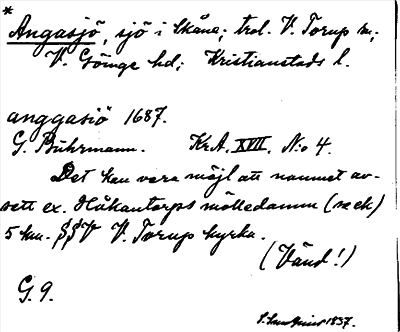 *
Angasjö, sjö i Skåne; trol. V. Torup sn;
V. Göinge hd; Kristianstads l.
anggasiö 1687.
G. Buhrmann. Kr.A. XVII. N:o 4.
Det kan vara möjl. att namnet av-
sett ex. Håkantorps mölledamm (rec k)
5 km. SSV V. Torup kyrka.
(Vänd!)
G. 9.
1937.